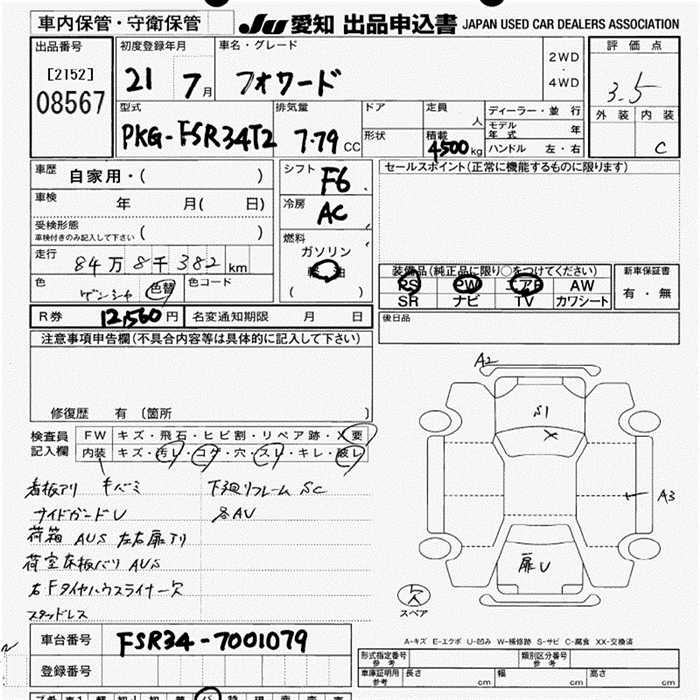 車内保管・守衛保管
JU 愛知 出品申込書 JAPAN USED CAR DEALERS ASSOCIATION
出品番号
[2152]
08567
初度登録年月
21 7月
車名・グレード
フォワード
2WD
・
4WD
評価点
3.5
外装 内装
C
型式
PKG-FSR34T2
排気量
7.79 CC
ドア
形状
定員
人
積載
4500kg
ディーラー・並 行
モデル年式 年
ハンドル 左・右
車歴 自家用・( )
車検 年 月( 日)
受検形態
車検付きのみ記入して下さい ( )
走行
84万8千382km
色
ゲンシャ 色替
色コード
シフト F6
冷房 AC
燃料
ガソリン
軽油
( )
セールスポイント(正常に機能するものに限ります)
装備品(純正品に限り○をつけてください)
PS PW エアB AW
SR ナビ TV カワシート
新車保証書
有・無
R券 12,560円
名変通知期限 月 日
後日品
注意事項申告欄(不具合内容等は具体的に記入して下さい)
修復歴 有 (箇所 )
検査員
記入欄
FW キズ・飛石・ヒビ割・リペア跡・X要
内装 キズ・汚レ・コゲ・穴・スレ・キレ・破レ
看板アリ キバミ
サイドガードU
荷箱 AUS 左右扉アリ
荷室床板バリ AUS
右Fタイヤハウスライナー欠
スタッドレス
下廻リフレーム SC
各AU
A2
S1
X
A3
扉U
欠
スペア
A-キズ E-エクボ U-凹み W-補修跡 S-サビ C-腐食 XX-交換済
車台番号 FSR34-7001079
登録番号
形式指定番号
参考
類別区分番号
参考
車庫証明用
参考
長さ cm 幅 cm 高さ cm